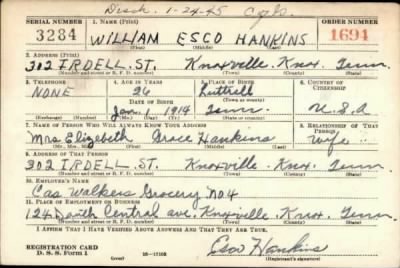 Disch. 1-24-45 Cpl.
SERIAL NUMBER 1. NAME (Print) ORDER NUMBER
3284 WILLIAM ESCO HANKINS 1694
(First) (Middle) (Last)
2. ADDRESS (Print)
302 IRDELL. ST. Knoxville. Knox. Tenn
(Number and street or R. F. D. number) (Town) (County) (State)
3. TELEPHONE 4. AGE IN YEARS 5. PLACE OF BIRTH 6. COUNTRY OF CITIZENSHIP
NONE 26 Luttrell
DATE OF BIRTH
Jan. 1 1914 Tenn. U.S.A
(Exchange) (Number) (Mo.) (Day) (Yr.) (State or country)
7. NAME OF PERSON WHO WILL ALWAYS KNOW YOUR ADDRESS 8. RELATIONSHIP OF THAT PERSON
Mrs Elizabeth Grace Hankins Wife
(Mr., Mrs., Miss) (First) (Middle) (Last)
9. ADDRESS OF THAT PERSON
302 IRDELL ST. Knoxville. Knox. Tenn
(Number and street or R. F. D. number) (Town) (County) (State)
10. EMPLOYER'S NAME
Cas Walkers Grocery No 4
11. PLACE OF EMPLOYMENT OR BUSINESS
124 South Central ave. Knoxville. Knox. Tenn
(Number and street or R. F. D. number) (Town) (County) (State)
I AFFIRM THAT I HAVE VERIFIED ABOVE ANSWERS AND THAT THEY ARE TRUE.
Esco Hankins
REGISTRATION CARD
D. S. S. Form 1 (over) 16-17105 (Registrant's signature)